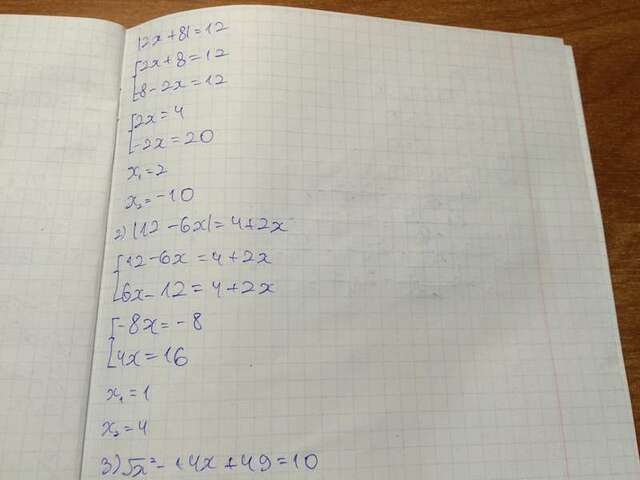 |2x+8|=12
[2x+8=12
8-2x=12
[2x=4
-2x=20
x₁=2
x₂=-10
2) |12-6x|=4+2x
[12-6x=4+2x
6x-12=4+2x
[-8x=-8
4x=16
x₁=1
x₂=4
3) √x²-14x+49=10